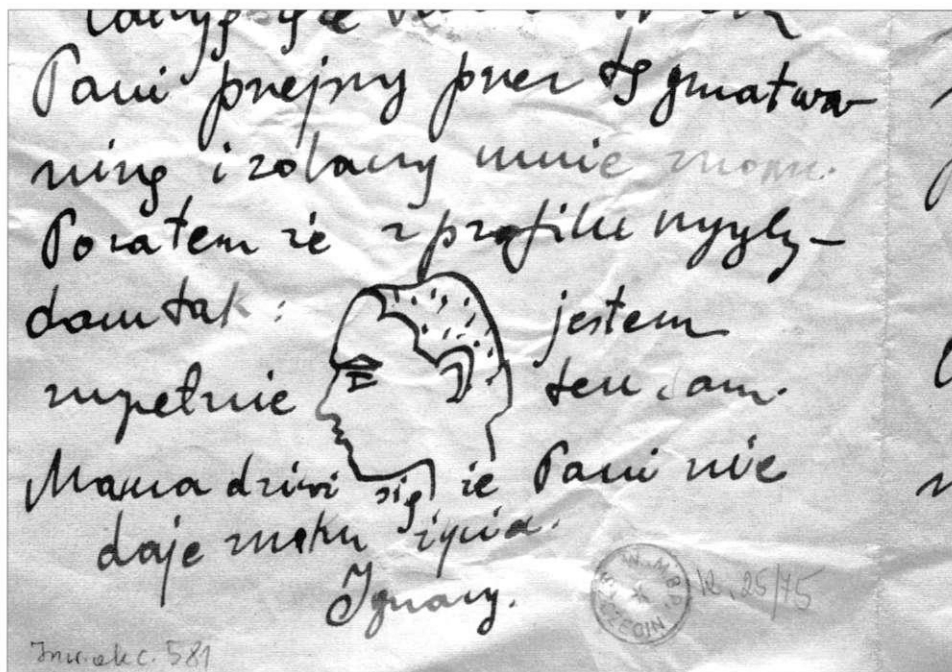 Pani przejrzy przez tę gmatwa-
ninę i zobaczy mnie znowu.
Pozatem że z profilu wyglą-
dam tak: jestem
zupełnie ten sam.
Mama dziwi się że Pani nie
daje znaku życia.
Ignacy.
W. M.B.P. SZCZECIN
25/75
Inw. akc. 581